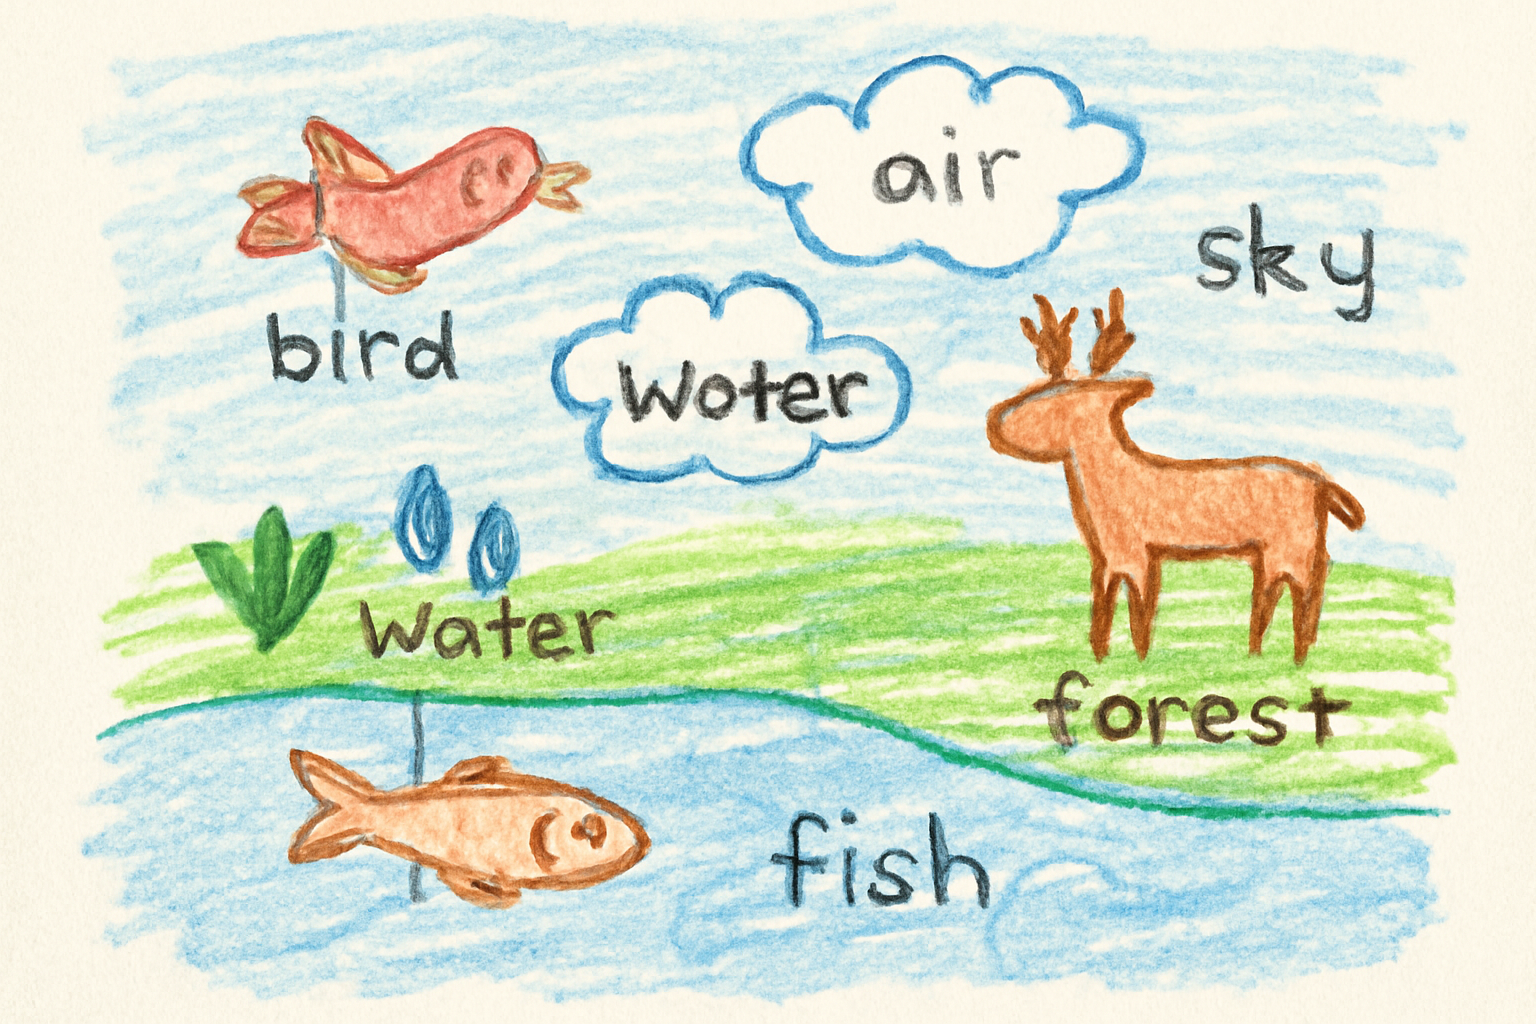 air
sky
bird
Woter
Water
forest
fish